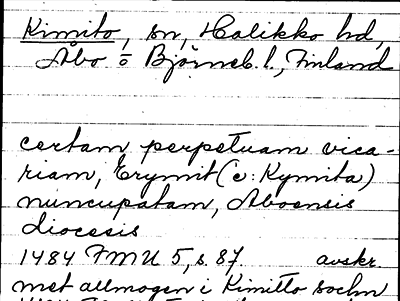 Kimito, sn, Halikko hd,
Åbo o Björneb. l., Finland
certam perpetuam vica-
riam, Erymit (c: Kymita)
nuncupatam, Aboensis
diocesis
1484 FMU 5, s. 87. avskr.
met allmogen i Kimitto sochn